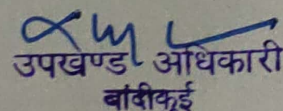 उपखण्ड अधिकारी
बांदीकुई